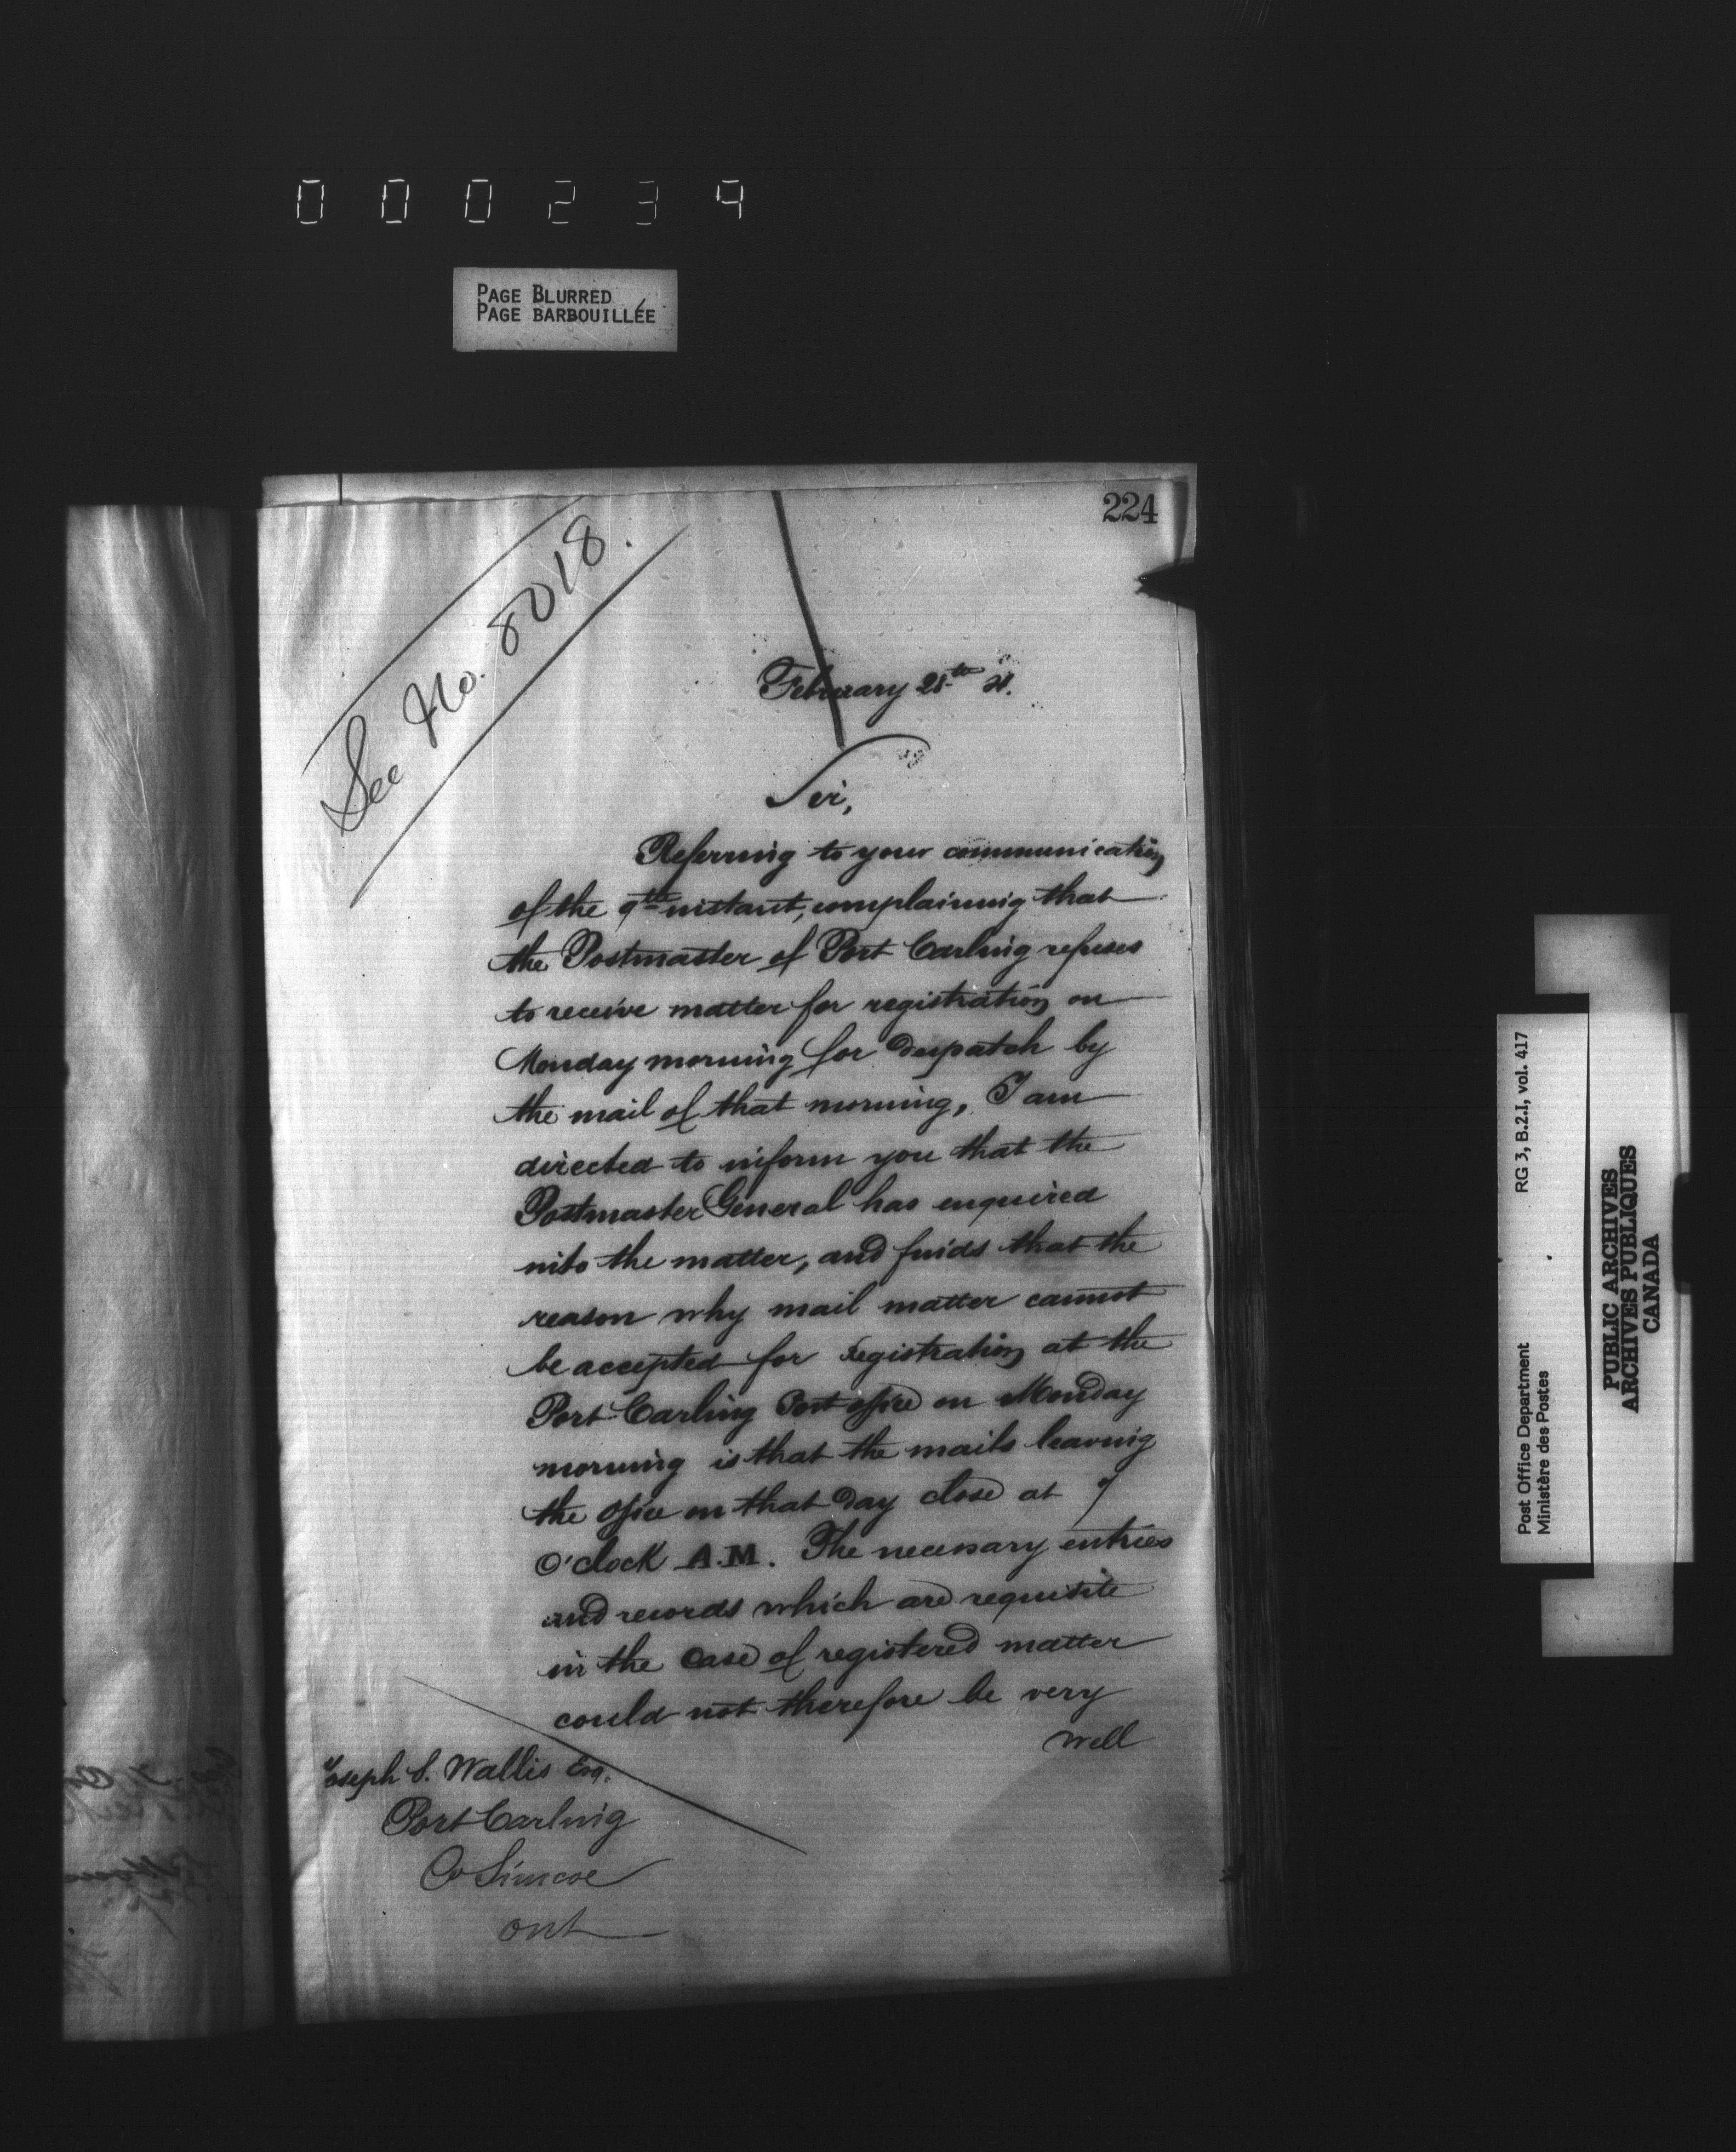 000234
PAGE BLURRED
PAGE BARBOUILLÉE
224
See No. 8018.
February 28th
Sir,
Referring to your communication
of the 9th instant, complaining that
the Postmaster of Port Carling refuses
to receive matter for registration on
Monday morning for despatch by
the mail of that morning, I am
directed to inform you that the
Postmaster General has enquired
into the matter, and finds that the
reason why mail matter cannot
be accepted for registration at the
Port Carling Post office on Monday
morning is that the mails leaving
the office on that day close at 7
O'clock A.M. The necessary entries
and records which are requisite
in the case of registered matter
could not therefore be very
well
Joseph S. Wallis Esq.
Port Carling
Co Simcoe
Ont
Post Office Department
Ministère des Postes
RG 3, B.2.I, vol. 417
PUBLIC ARCHIVES
ARCHIVES PUBLIQUES
CANADA